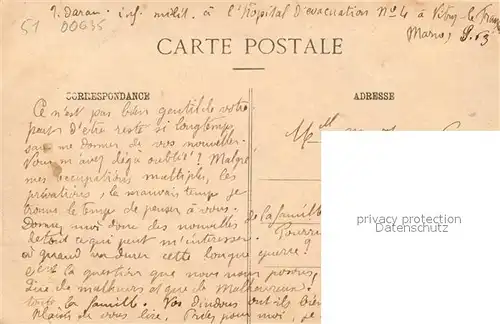 J. Daran. inf. milit. à l'hospital d'évacuation N° 4 à Vitry-le-
Marne S.P. 63
51 DOG35
CARTE POSTALE
CORRESPONDANCE
ADRESSE
Ce n'est pas bien gentil de votre
part d'être resté si longtemps
sans me donner de vos nouvelles.
Vous m'avez déjà oublié? Malgré
mes occupations multiples, les
privations, le mauvais temps je
trouve le temps de penser à vous.
Donnez moi donc des nouvelles de la famille
de tout ce qui peut m'intéresser.
à quand va durer cette longue guerre?
C'est la question que nous nous posons,
de malheurs et que de Malheureux!
toute la famille. Vos dindons ont ils bien
plaisir de vous lire, Priez pour moi, je
Mlle
privacy protection
Datenschutz